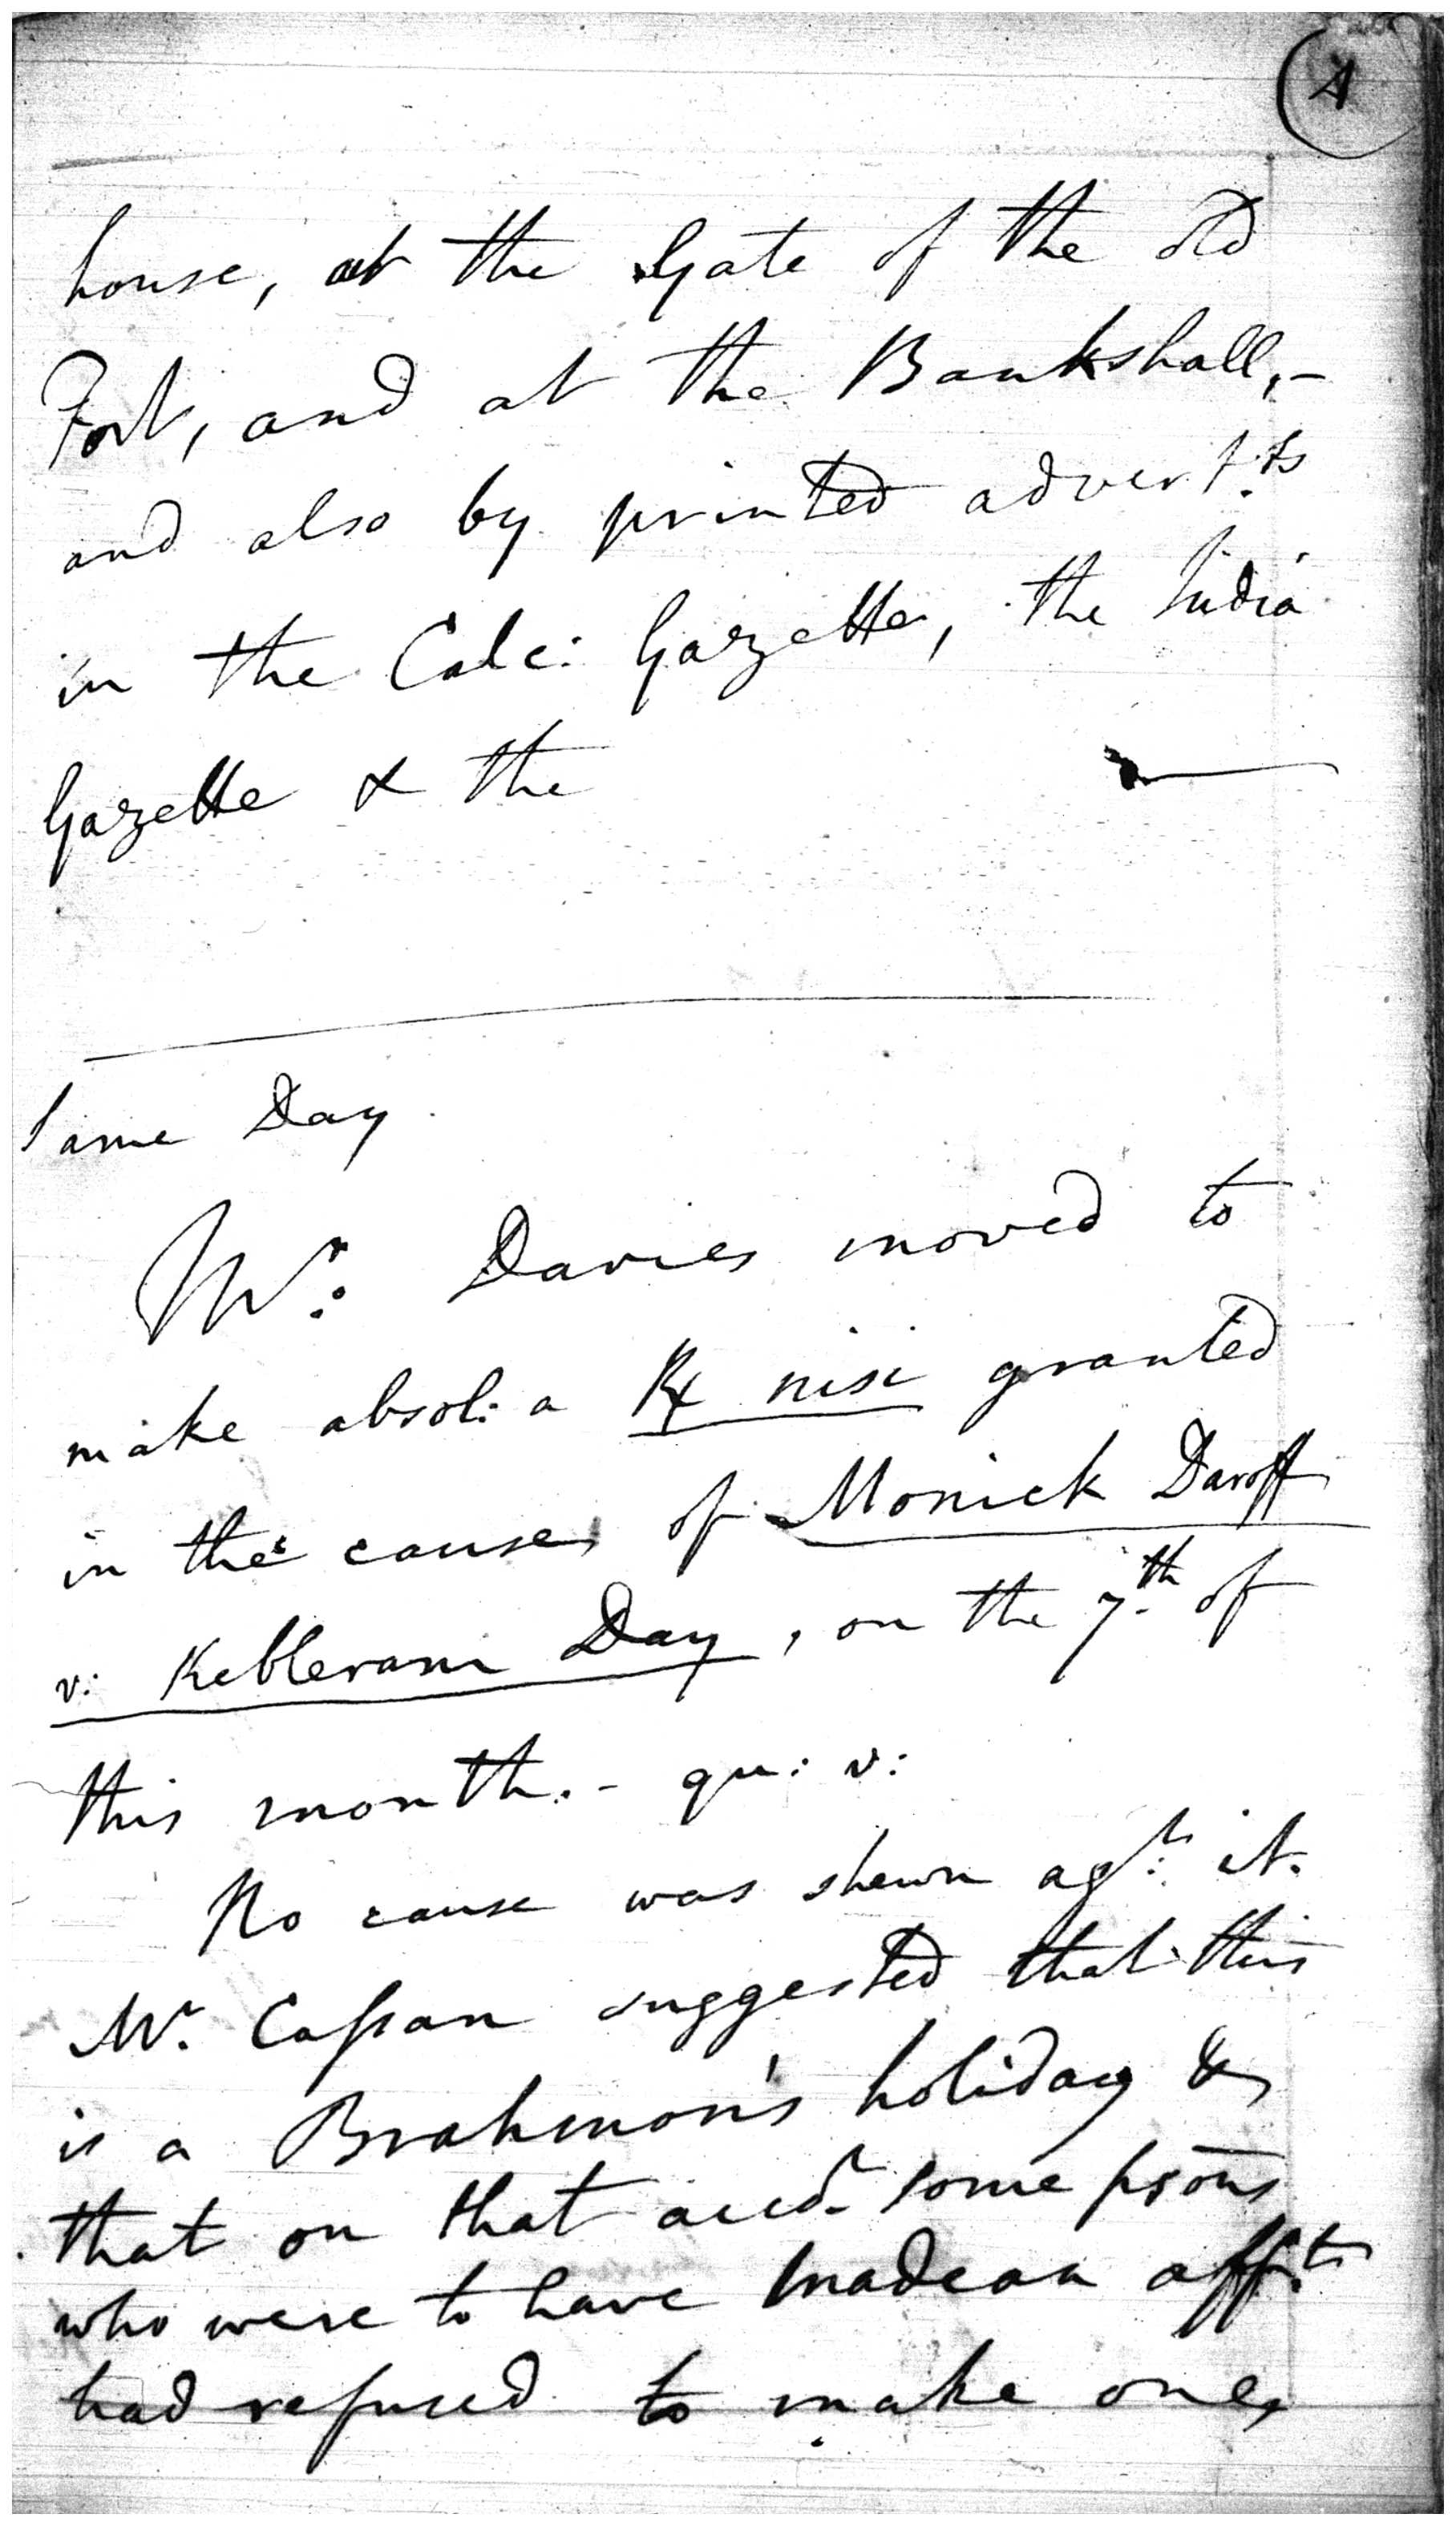 A
house, at the Gate of the old
Fort, and at the Bankshall, -
and also by printed advert.ts
in the Calc: Gazette, the India
Gazette & the
Same Day
Mr. Davies moved to
make absol: a Rx nisi granted
in the cause of Monick Davoff
v: Kebleram Day, on the 7th of
this month. - qu: v:
No cause was shewn agt. it.
Mr. Cassan suggested that this
is a Brahmon's holiday &
that on that acct. some psons
who were to have made an afft.
had refused to make one,